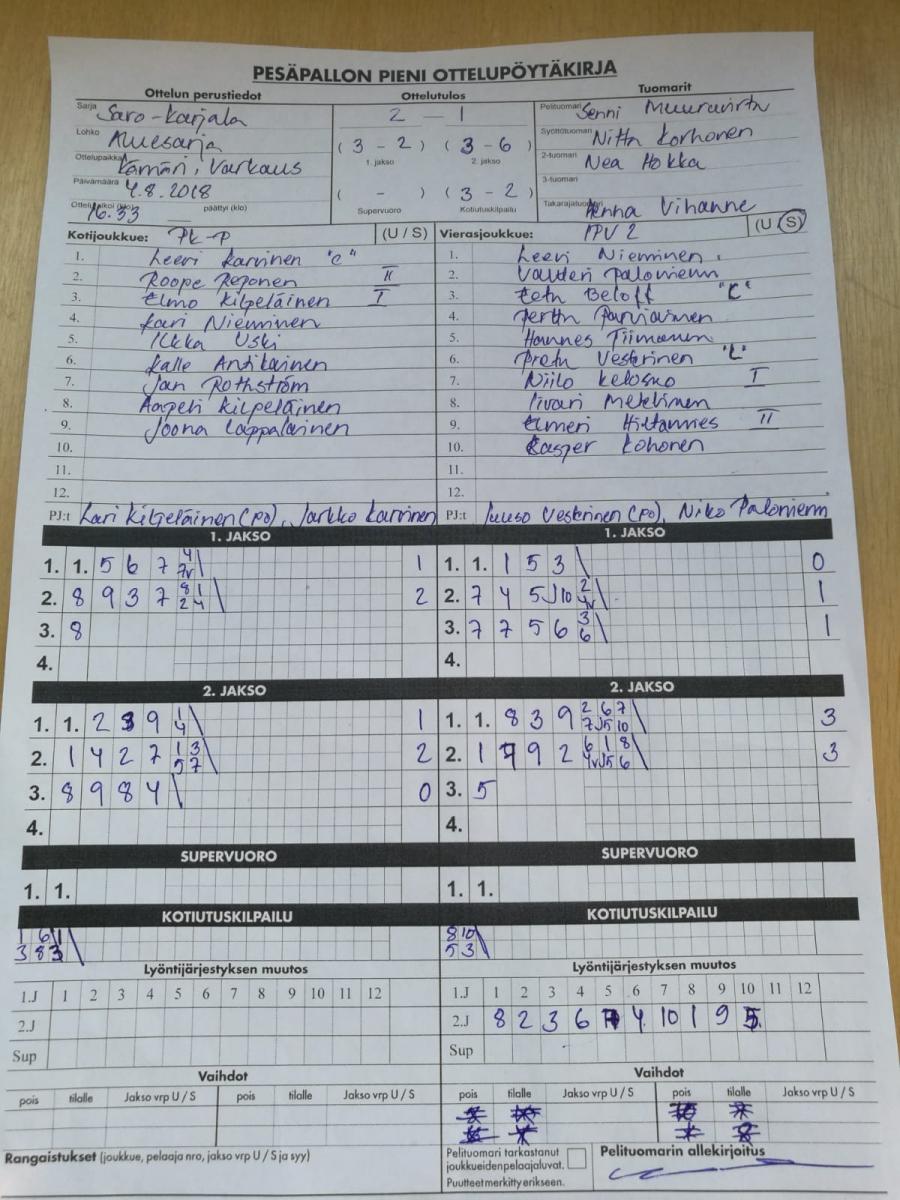 PESÄPALLON PIENI OTTELUPÖYTÄKIRJA
Ottelun perustiedot Ottelutulos Tuomarit
Sarja Savo-Karjala 2 – 1 Pelituomari Senni Muuravirta
Lohko Aluesarja ( 3 – 2 ) ( 3 – 6 ) Syöttötuomari Nitta Korhonen
Ottelupaikka Kämäri, Varkaus 1. jakso 2. jakso 2-tuomari Nea Hokka
Päivämäärä 4.8.2018 ( - ) ( 3 – 2 ) 3-tuomari
Ottelu alkoi (klo) 16.33 päättyi (klo) Supervuoro Kotiutuskilpailu Takarajatuomari Henna Vihanne
Kotijoukkue: PK-P (U / S) Vierasjoukkue: PPV 2 (U / S)
1. Leevi Karvinen "C" 1. Leevi Nieminen
2. Roope Reponen II 2. Valtteri Paloniemi
3. Elmo Kilpeläinen I 3. Eetu Beloff "C"
4. Kari Nieminen 4. Perttu Parviainen
5. Ilkka Uski 5. Hannes Tiimonen
6. Kalle Antikainen 6. Pretu Vesterinen "L"
7. Jan Rothström 7. Niilo Kelosuo I
8. Aapeli Kilpeläinen 8. Iivari
9. Joona Lappalainen 9. Elmeri II
10. 10. Kasper Kohonen
11. 11.
12. 12.
PJ:t Lari Kilpeläinen (PO), Jarkko Karvinen PJ:t Juuso Vesterinen (PO), Niko Paloniemi
1. JAKSO 1. JAKSO
1. 1. 5 6 7 4 7v 1 1. 1. 1 5 3 0
2. 8 9 3 7 8 1 2 4 2 2. 7 4 5 J10 2 4v 1
3. 8 3. 7 7 5 6 3 6 1
4. 4.
2. JAKSO 2. JAKSO
1. 1. 2 3 9 1 4 1 1. 1. 8 3 9 2 6 7 7 J5 10 3
2. 1 4 2 7 1 3 5 7 2 2. 1 7 9 2 6 1 8 4v J5 6 3
3. 8 9 8 4 0 3. 5
4. 4.
SUPERVUORO SUPERVUORO
1. 1. 1. 1.
KOTIUTUSKILPAILU KOTIUTUSKILPAILU
1 6 1 8 10
3 8 3 5 3
Lyöntijärjestyksen muutos Lyöntijärjestyksen muutos
1.J 1 2 3 4 5 6 7 8 9 10 11 12 1.J 1 2 3 4 5 6 7 8 9 10 11 12
2.J 2.J 8 2 3 6 7 4 10 1 9 5
Sup Sup
Vaihdot Vaihdot
pois tilalle Jakso vrp U / S pois tilalle Jakso vrp U / S pois tilalle Jakso vrp U / S pois tilalle Jakso vrp U / S
Rangaistukset (joukkue, pelaaja nro, jakso vrp U / S ja syy) Pelituomari tarkastanut Pelituomarin allekirjoitus
joukkueidenpelaajaluvat.
Puutteet merkitty erikseen.